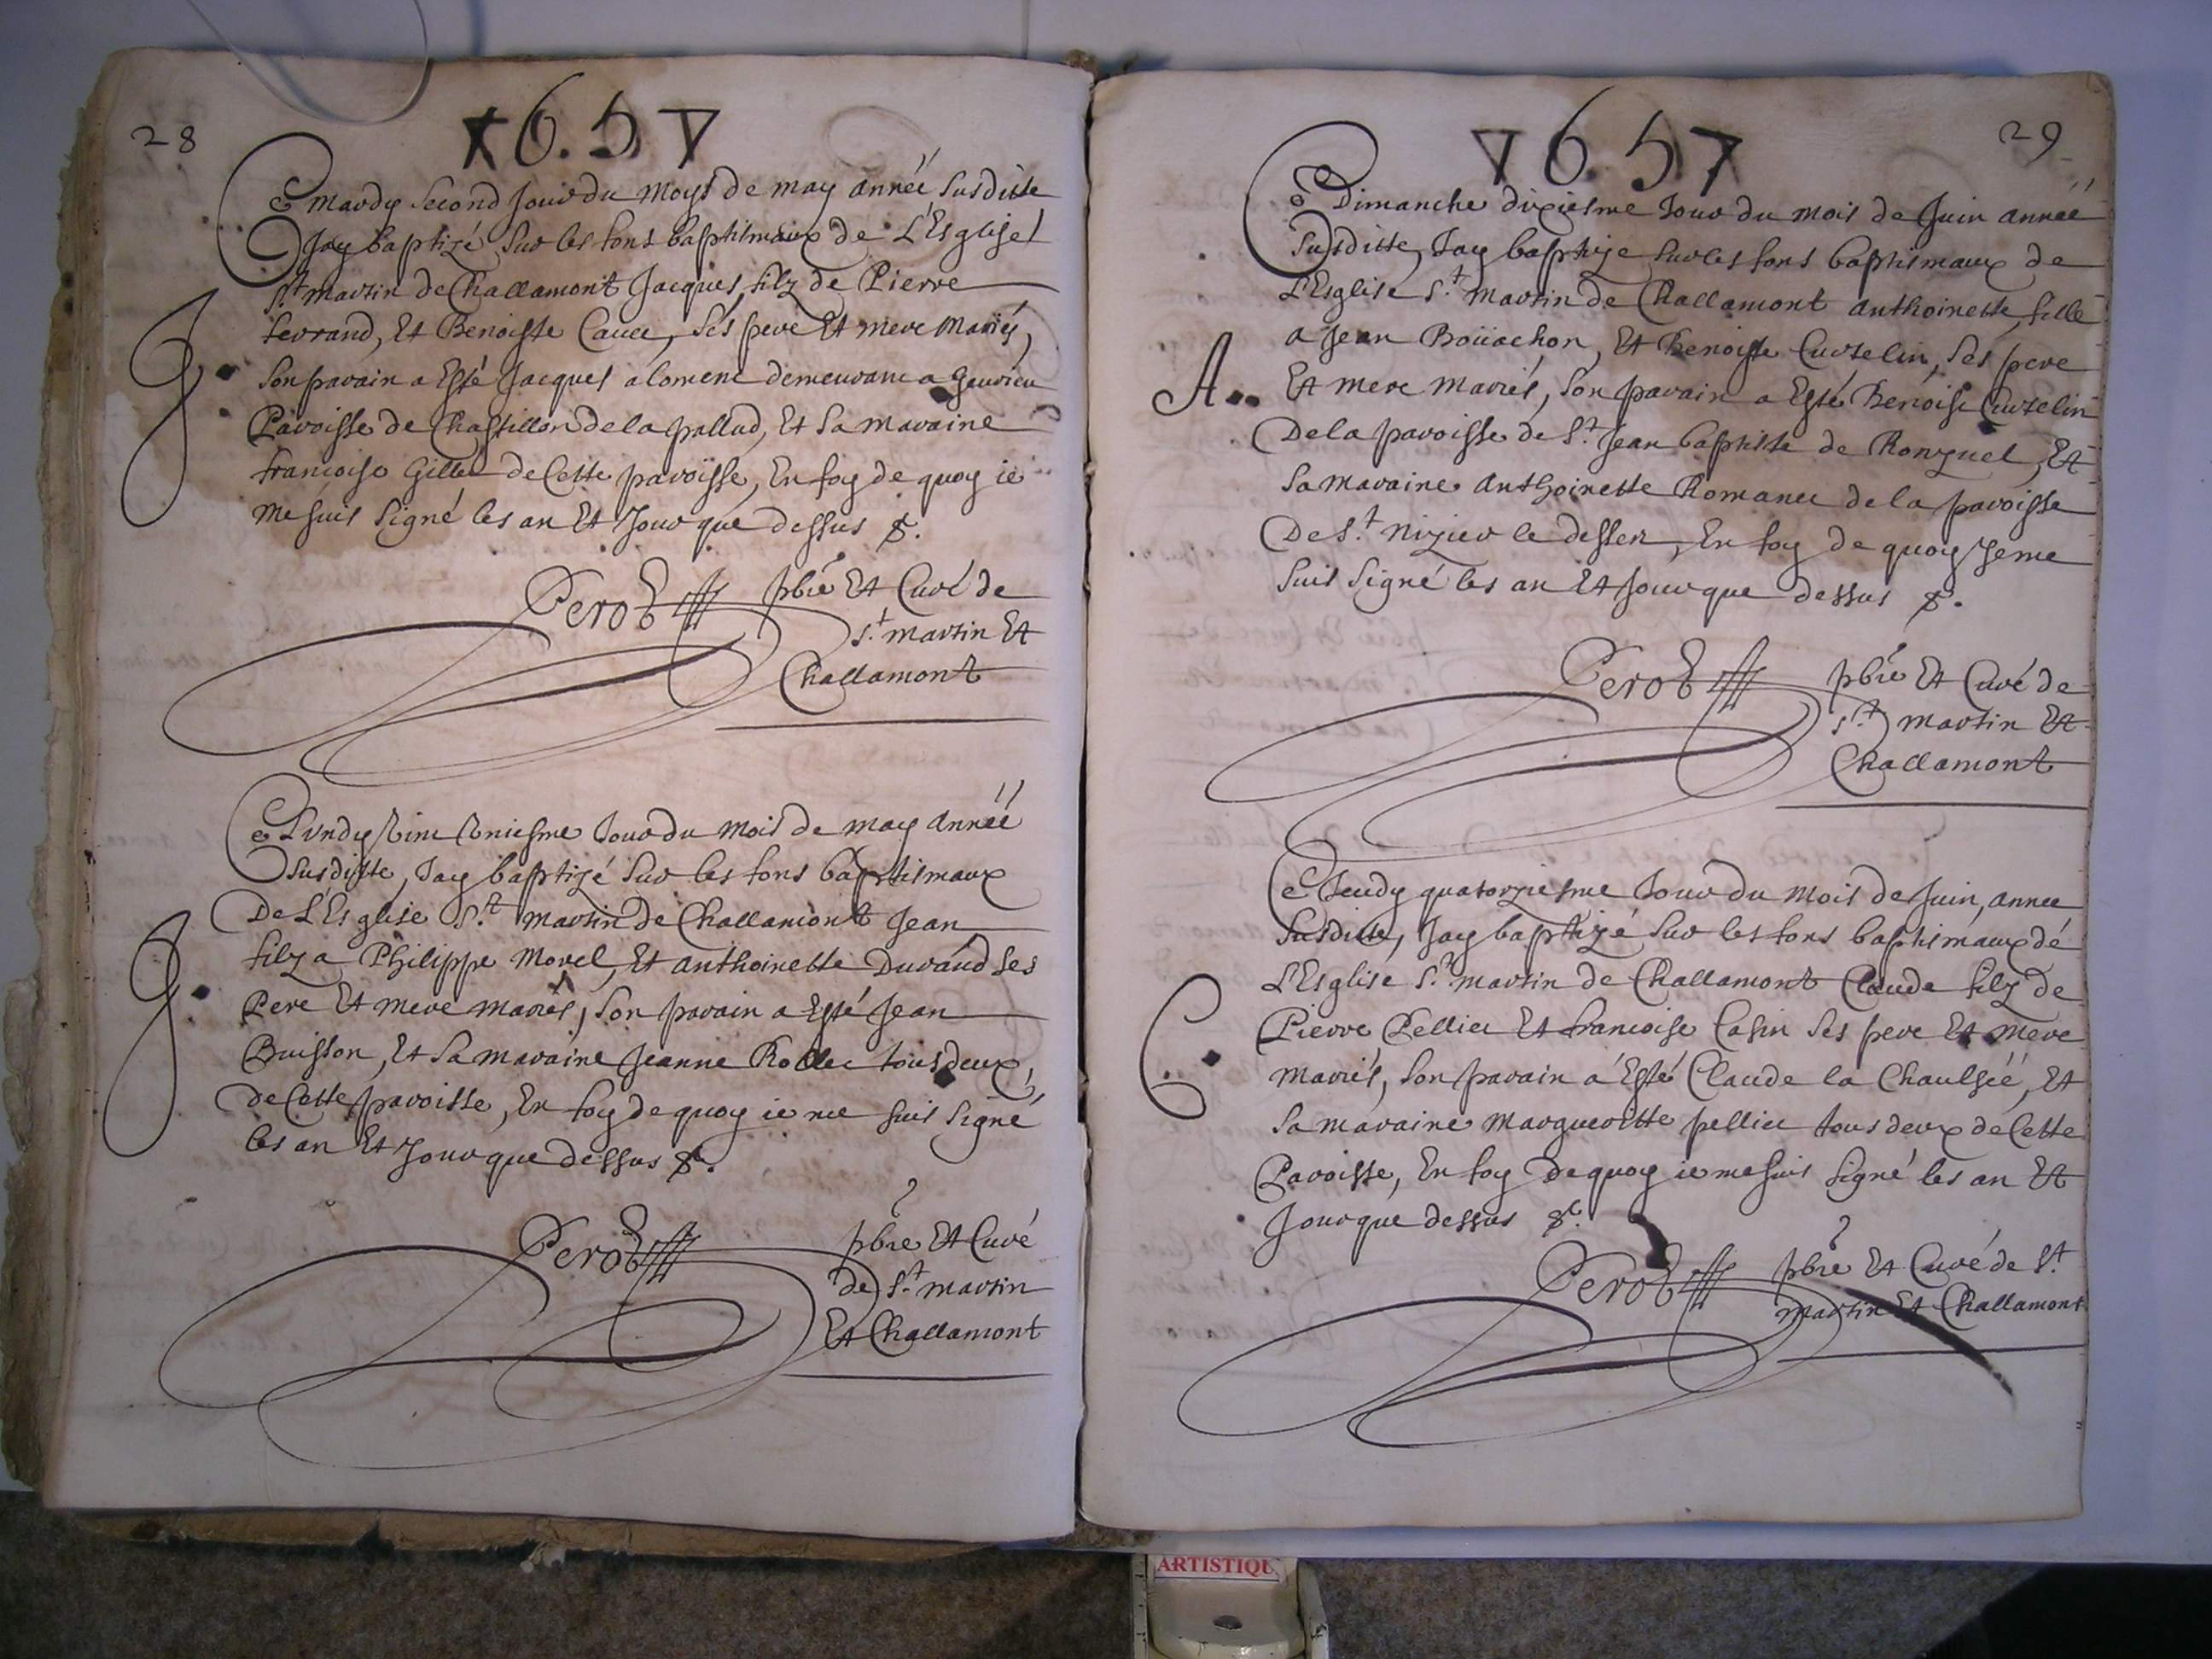 28
1657
Ce mardy second Jour du moys de may année susditte
Jay baptizé sur les fons baptismaux de L'Esglise
St martin de Challamont Jacques filz de Pierre
ferrand, Et Benoiste ses pere Et mere mariés,
J
son parain a Esté Jacques demeurant a
Paroisse de Chastillon de la pallud, Et sa maraine
francoise Gillet de Cette paroisse, En foy de quoy ie
me suis signé les an Et Jour que dessus &.
Perot pbre Et Curé de
St martin Et
Challamont
Ce Lundy vint vniesme Jour du mois de may année
susditte, Jay baptizé sur les fons baptismaux
De L'Esglise St martin de Challamont Jean
filz a Philippe Morel, Et anthoinette Durand ses
J
Pere Et mere mariés, son parain a Esté Jean
Buisson, Et sa maraine Jeanne tous deux
de Cette paroisse, En foy de quoy ie me suis signé
les an Et Jour que dessus &.
Perot pbre Et Curé
de St martin
Et Challamont
29
1657
Ce Dimanche dixiesme Jour du mois de Juin année
susditte, Jay baptize sur les fons baptismaux de
L'Esglise St martin de Challamont anthoinette fille
a Jean Boüachon, Et Benoiste Curtelin, ses pere
A
Et mere mariés, son parain a Esté Benoist Curtelin
De la paroisse de St Jean baptiste de Ronzuel, Et
sa maraine anthoinette Romanet de la paroisse
De St nizier le desert, En foy de quoy Je me
suis signé les an Et Jour que dessus &.
Perot pbre Et Curé de
St martin Et
Challamont
Ce Jeudy quatorziesme Jour du mois de Juin, annee
susditte, Jay baptizé sur les fons baptismaux de
L'Esglise St martin de Challamont Claude filz de
Pierre Pellier Et francoise Casin ses pere Et mere
C
mariés, son parain a Esté Claude la Chaulsée, Et
sa maraine Margueritte pellier tous deux de Cette
Paroisse, En foy de quoy ie me suis signé les an Et
Jour que dessus &.
Perot pbre Et Curé de St
martin Et Challamont
ARTISTIQU